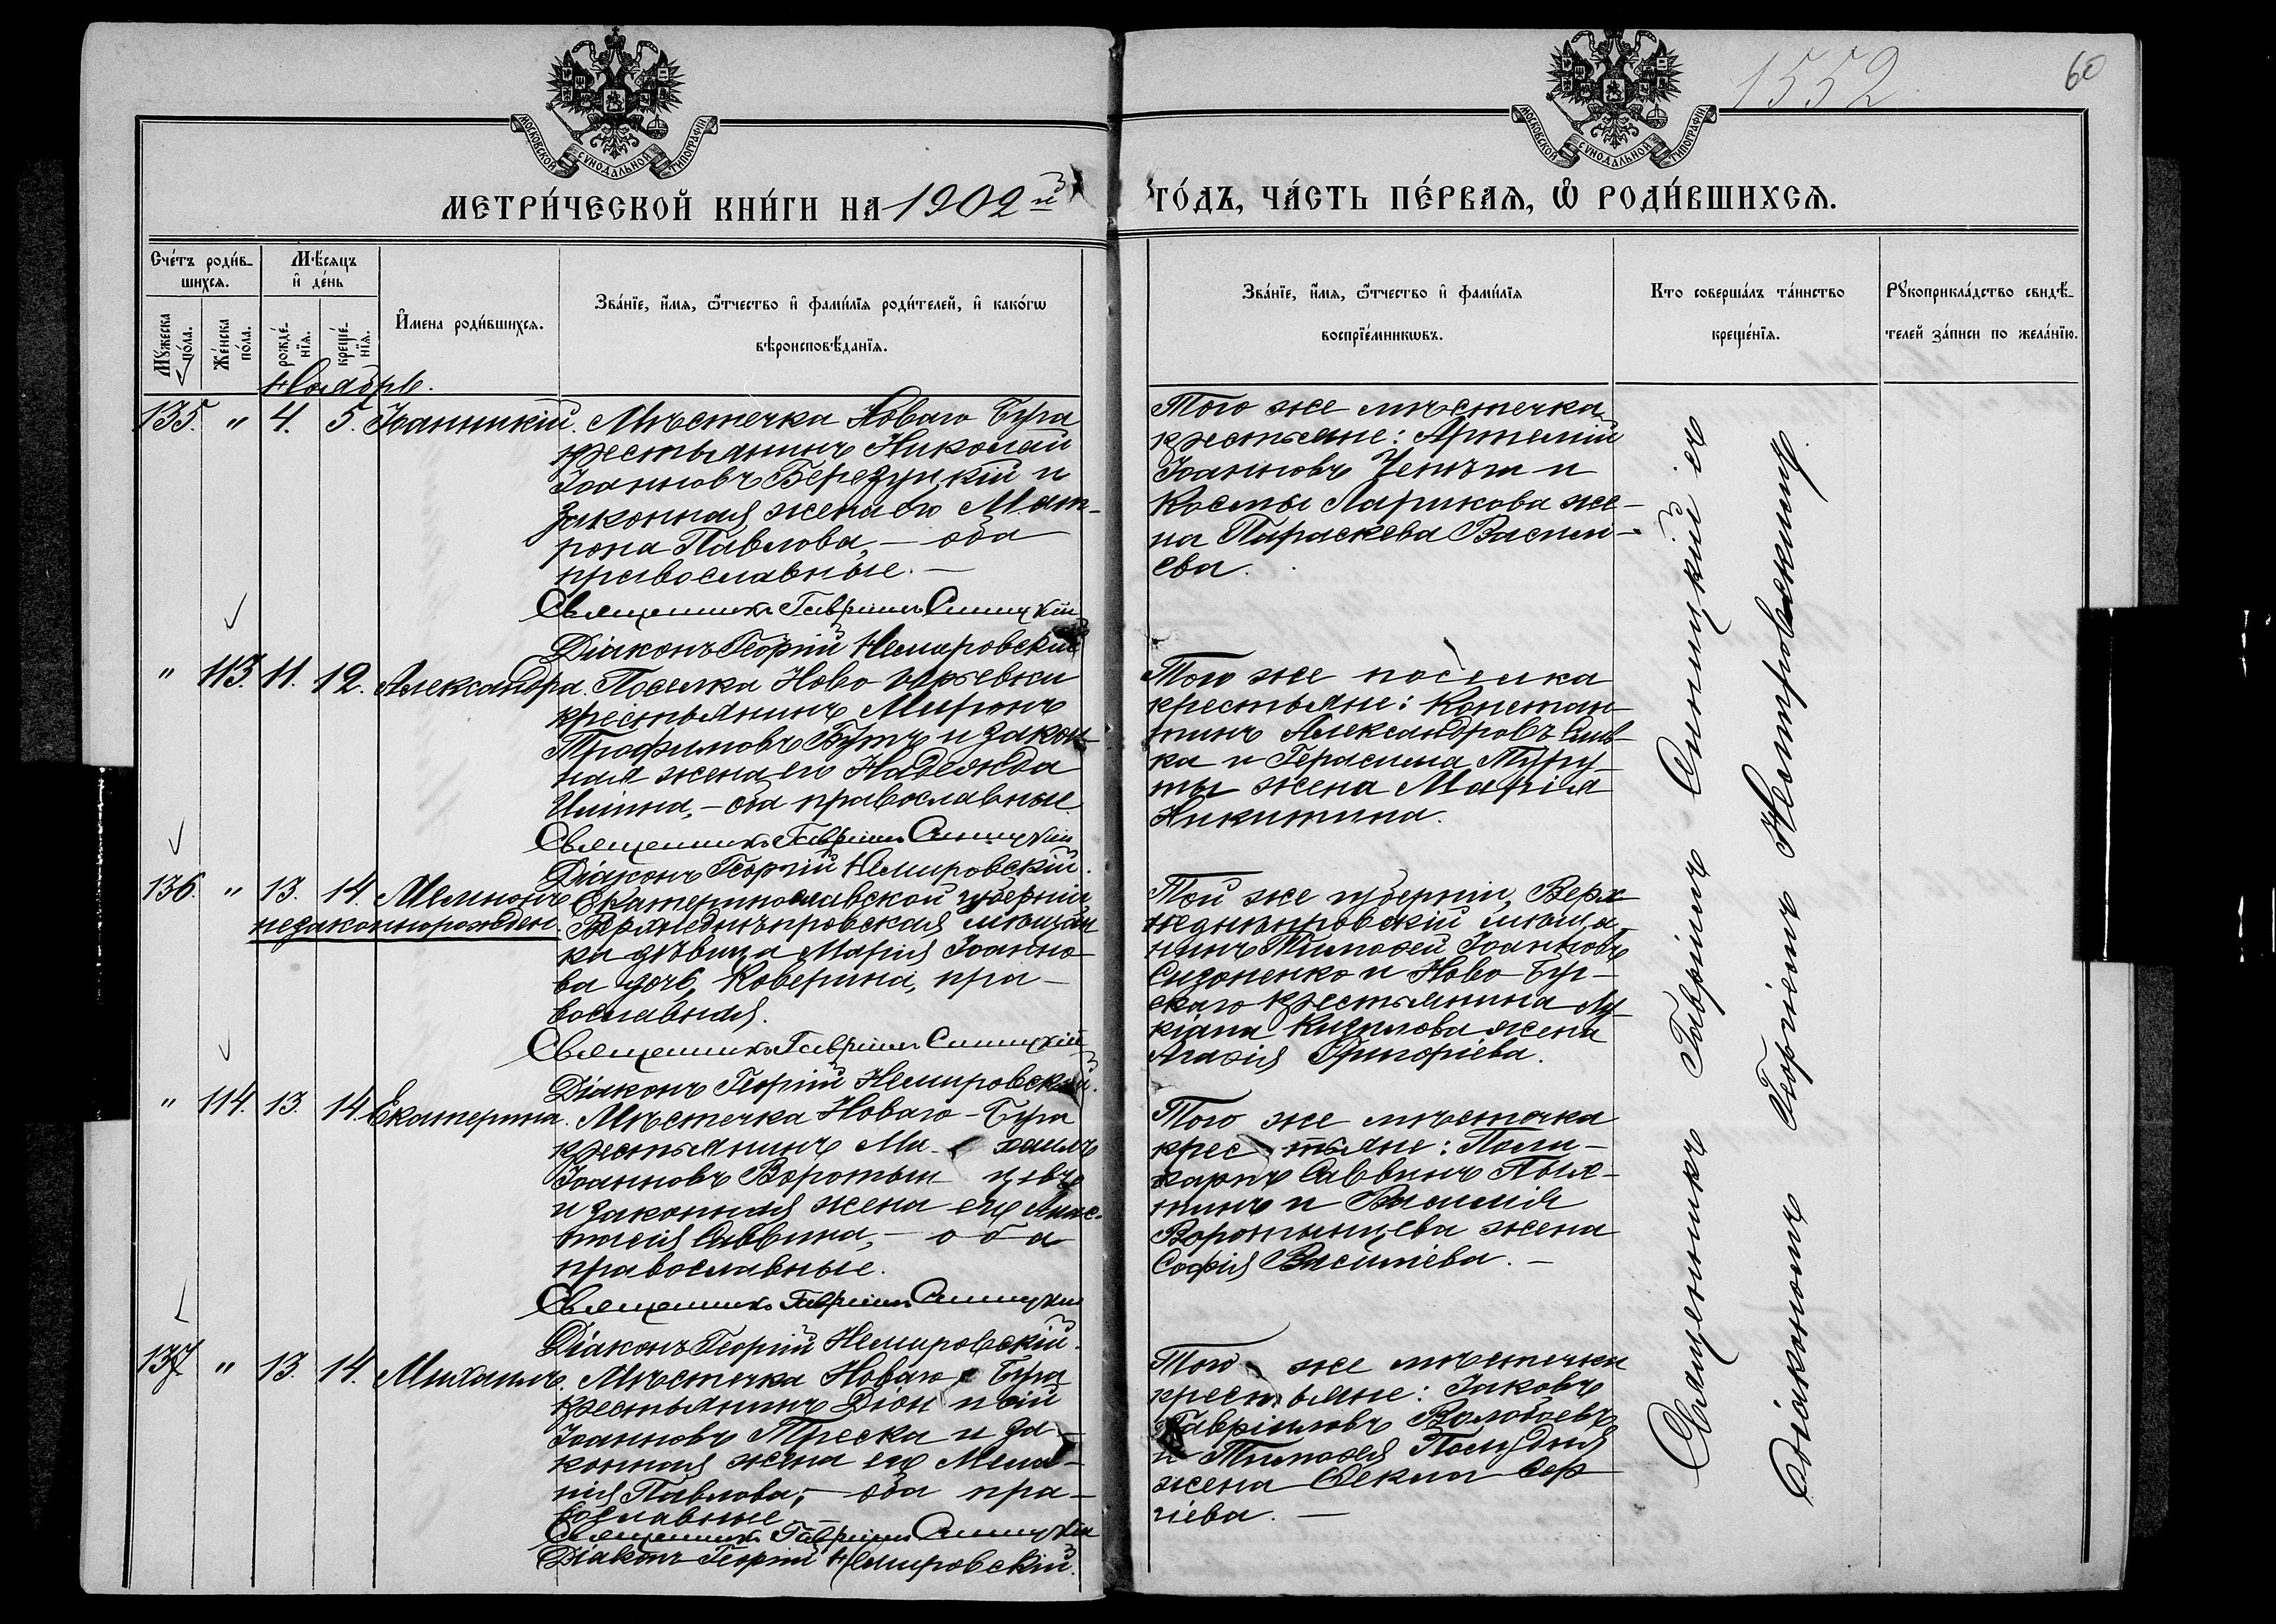 1552
60
МОСКОВСКОЙ СѴНОДАЛЬНОЙ ТИПОГРАФІИ
МОСКОВСКОЙ СѴНОДАЛЬНОЙ ТИПОГРАФІИ
МЕТРИ́ЧЕСКОЙ КНИ́ГИ НА 1902й
ГО́ДЪ, ЧА́СТЬ ПЕ́РВАѦ, Ѽ РОДИ́ВШИХСѦ.
Сче́тъ роди́в-
шихсѧ.
Мꙋ́жеска по́ла.
Же́нска по́ла.
Мѣ́сѧцъ
и҆ де́нь
рожде́-
нїѧ.
креще́-
нїѧ.
И҆мена роди́вшихсѧ.
Зва́нїе, и҆́мѧ, ѻ҆́тчество и҆ фами́лїѧ роди́телей, и҆ како́гѡ
вѣроисповѣ́данїѧ.
Зва́нїе, и҆́мѧ, ѻ҆́тчество и҆ фами́лїѧ
воспрїе́мникѡвъ.
Кто соверша́лъ та́инство
креще́нїѧ.
Рꙋкоприкла́дство свидѣ́-
телей за́писи по жела́нїю.
Ноябрь.
135. " 4. 5. Іоанникій. Мѣстечка Новаго Буга
крестьянинъ Николай
Іоанновъ Березуцкій и
законная жена его Мат-
рона Павлова, – оба
православные. –
Священникъ Гавріилъ Синицкій
Діаконъ Георгій Немировскій
Того же мѣстечка
крестьяне: Артемій
Іоанновъ и
Космы Ларикова же-
на Параскева Василі-
ева.
" 113. 11. 12. Александра. Поселка Ново Юрьевки
крестьянинъ Миронъ
Трофимовъ Бутъ и закон-
ная жена его Надежда
Иліина, – оба православные
Священникъ Гавріилъ Синицкій
Діаконъ Георгій Немировскій.
Того же поселка
крестьяне: Констан-
тинъ Александровъ Слив-
ка и Герасима Туру-
ты жена Марія
Никитина.
136. " 13. 14. Мемнонъ Екатеринославской губерніи,
незаконнорожден. Верхнеднѣпровская мѣщан
ка дѣвица Марія Іоанно-
ва дочь Коверина, пра-
вославная.
Священникъ Гавріилъ Синицкій
Діаконъ Георгій Немировскій.
Той же губерніи, Верх-
неднѣпровскій мѣща-
нинъ Тимоѳей Іоанновъ
Сидоненко и Ново-Буг-
скаго крестьянина Лу-
кіана Кирилова жена
Агаѳія Григоріева.
" 114. 13. 14. Екатерина. Мѣстечка Новаго-Буга
крестьянинъ Ми-хаилъ
Іоанновъ Воротын цевъ
и законная жена его Анас-
тасія Саввина, – оба
православные.
Священникъ Гавріилъ Синицкій
Діаконъ Георгій Немировскій.
Того же мѣстечка
крестьяне: Поли-
карпъ Саввинъ
и Василія
Воротынцева жена
Софія Василіева. –
137. " 13. 14. Михаилъ. Мѣстечка Новаго Буга
крестьянинъ Діонисій
Іоанновъ Треска и за-
конная жена его Мела-
нія Павлова, – оба пра-
вославные
Священникъ Гавріилъ Синицкій
Діаконъ Георгій Немировскій.
Того же мѣстечка
крестьяне: Іаковъ
Гавріиловъ Волобоевъ
и Тимоѳея Полудня
жена Ѳекла Сер-
гіева. –
Священникъ Гавріилъ Синицкій съ
Діакономъ Георгіемъ Немировскимъ.